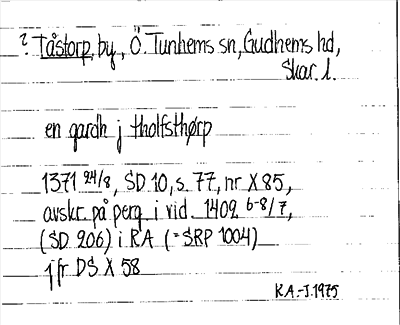 ? Tåstorp, by, Ö. Tunhems sn, Gudhems hd,
Skar. l.
en gardh j tholfsthørp
1371 24/8, SD 10, s. 77, nr X 85,
avskr. på perg. i vid. 1409 6-8/7,
(SD 206) i RA (=SRP 1004)
jfr DS X 58
K.A.-J. 1975